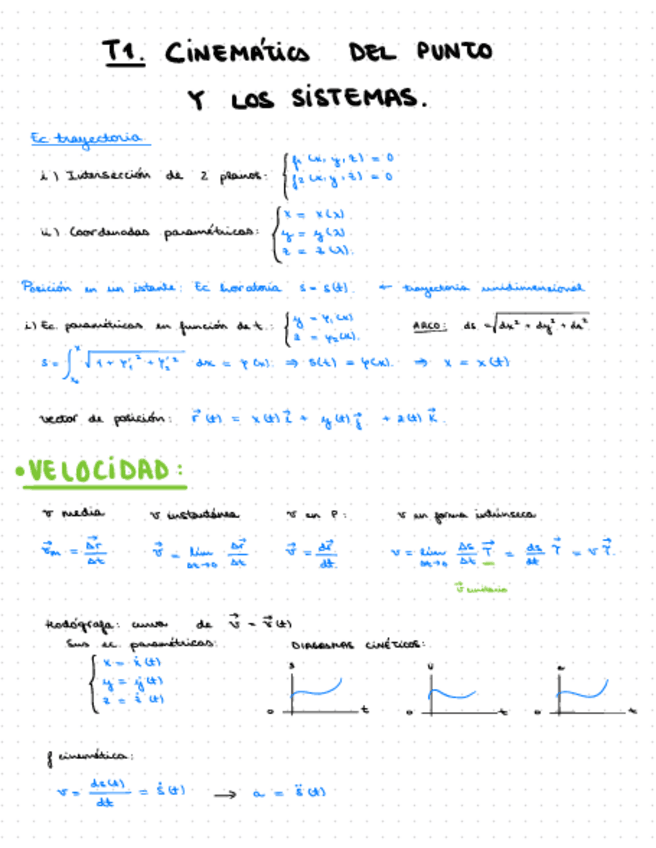 T1. CINEMÁTICA DEL PUNTO
Y LOS SISTEMAS.
Ec trayectoria.
i) Intersección de 2 planos: { f₁ (x, y, z) = 0
f₂ (x, y, z) = 0
ii) Coordenadas paramétricas: { x = x(λ)
y = y(λ)
z = z(λ).
Posición en un istante: Ec horatoria s = s(t). ← trayectoria unidimensional
i) Ec. paramétricas en función de t.: { y = φ₁(x)
z = φ₂(x).
ARCO: ds = √(dx² + dy² + dz²)
s = ∫ₓ₀ˣ √(1 + φ₁'² + φ₂'²) dx = φ(x). ⇒ s(t) = φ(x). ⇒ x = x(t)
vector de posición: r⃗(t) = x(t) i⃗ + y(t) j⃗ + z(t) k⃗.
• VELOCIDAD:
v media v instantánea v en P: v en forma intrínseca
v⃗ₘ = Δr⃗/Δt v⃗ = lim Δt→0 Δr⃗/Δt v⃗ = dr⃗/dt. v = lim Δt→0 Δs/Δt T⃗ = ds/dt T⃗ = v T⃗.
v⃗ unitario
Hodógrafa: curva de v⃗ = v⃗(t)
Sus ec. paramétricas: DIAGRAMAS CINÉTICOS:
{ x = ẋ(t)
y = ẏ(t)
z = ż(t)
s v a
o t o t o t
f cinemática:
v = ds(t)/dt = ṡ(t) → a = s̈(t)